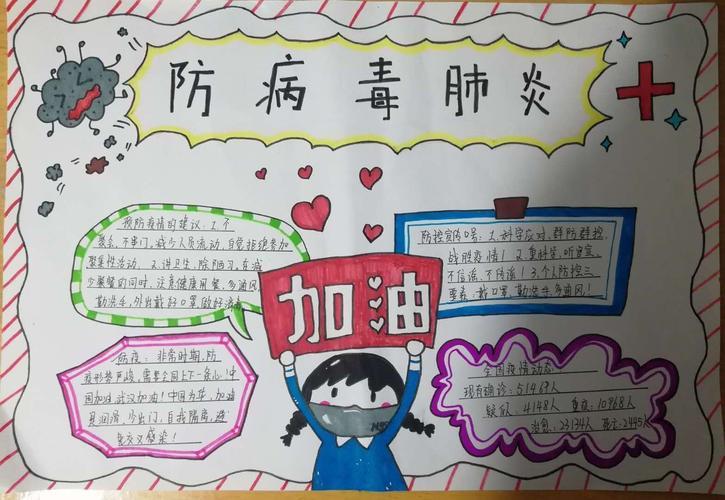 防病毒肺炎
预防疫情的建议：1.不
聚会、不串门，减少人员流动，自觉拒绝参加
聚集性活动．2.讲卫生，除陋习，在减
少聚餐的同时，注意健康用餐，多通风
勤洗手，外出戴好口罩，做好消
防控宣传口号：1.科学应对，群防群控，
战胜疫情！2.重科学，听官宣，
不信谣，不传谣！3.个人防控三
要素：戴口罩，勤洗手，多通风！
加油
防疫：非常时期，防
疫形势严峻，需要全国上下一条心！中
国加油，武汉加油！中国力量，加油
少出门，自我隔离，避
免交叉感染！
全国疫情动态
现有确诊：51463人
疑似：4148人 重症：10968人
治愈：23134人 死亡：2445人
N95